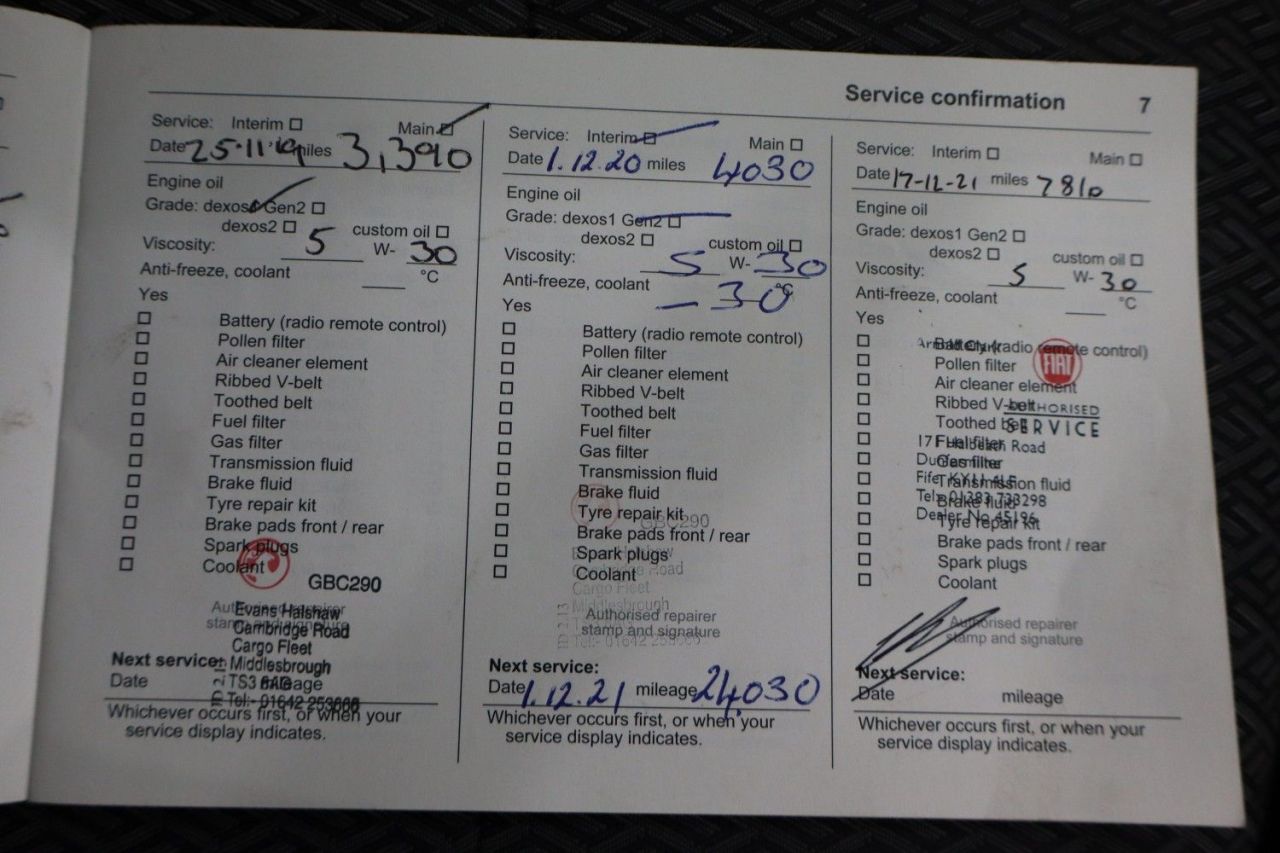 Service confirmation 7
Service: Interim Main
Date 25.11.19 miles 3,390
Engine oil
Grade: dexos1 Gen2
dexos2 custom oil
Viscosity: 5 W- 30
Anti-freeze, coolant °C
Yes
Battery (radio remote control)
Pollen filter
Air cleaner element
Ribbed V-belt
Toothed belt
Fuel filter
Gas filter
Transmission fluid
Brake fluid
Tyre repair kit
Brake pads front / rear
Spark plugs
Coolant
GBC290
Authorised repairer
stamp and signature
Evans Halshaw
Cambridge Road
Cargo Fleet
Middlesbrough
TS3 8AG
Tel:- 01642 253666
Next service:
Date mileage
Whichever occurs first, or when your
service display indicates.
Service: Interim Main
Date 1.12.20 miles 4030
Engine oil
Grade: dexos1 Gen2
dexos2 custom oil
Viscosity: 5 W- 30
Anti-freeze, coolant -30 °C
Yes
Battery (radio remote control)
Pollen filter
Air cleaner element
Ribbed V-belt
Toothed belt
Fuel filter
Gas filter
Transmission fluid
Brake fluid
Tyre repair kit
Brake pads front / rear
Spark plugs
Coolant
GBC290
Halshaw
Cambridge Road
Cargo Fleet
Middlesbrough
Tel:- 01642 253666
Authorised repairer
stamp and signature
Next service:
Date 1.12.21 mileage 24,030
Whichever occurs first, or when your
service display indicates.
Service: Interim Main
Date 17-12-21 miles 7810
Engine oil
Grade: dexos1 Gen2
dexos2 custom oil
Viscosity: 5 W- 30
Anti-freeze, coolant °C
Yes
Battery (radio remote control)
Pollen filter
Air cleaner element
Ribbed V-belt
Toothed belt
Fuel filter
Gas filter
Transmission fluid
Brake fluid
Tyre repair kit
Brake pads front / rear
Spark plugs
Coolant
Arnold Clark
FIAT
AUTHORISED
SERVICE
Halbeath Road
Dunfermline
Fife, KY11 4LF
Tel: 01383 733298
Dealer No 45196
Authorised repairer
stamp and signature
Next service:
Date mileage
Whichever occurs first, or when your
service display indicates.